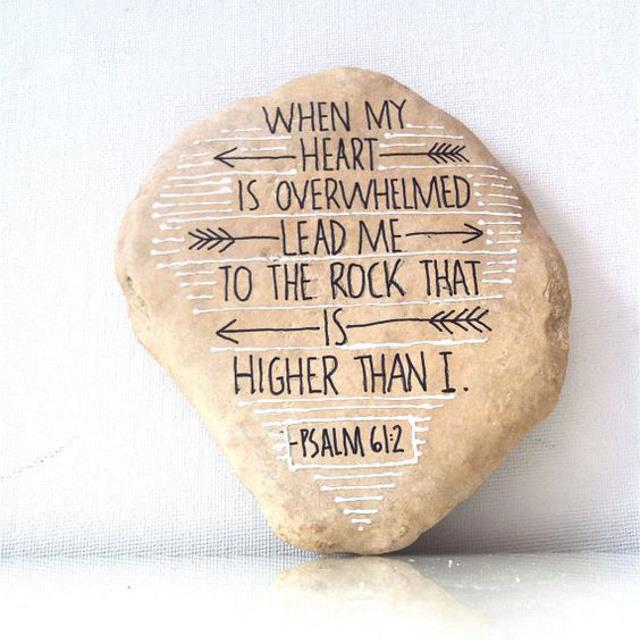 WHEN MY
HEART
IS OVERWHELMED
LEAD ME
TO THE ROCK THAT
IS
HIGHER THAN I.
-PSALM 61:2